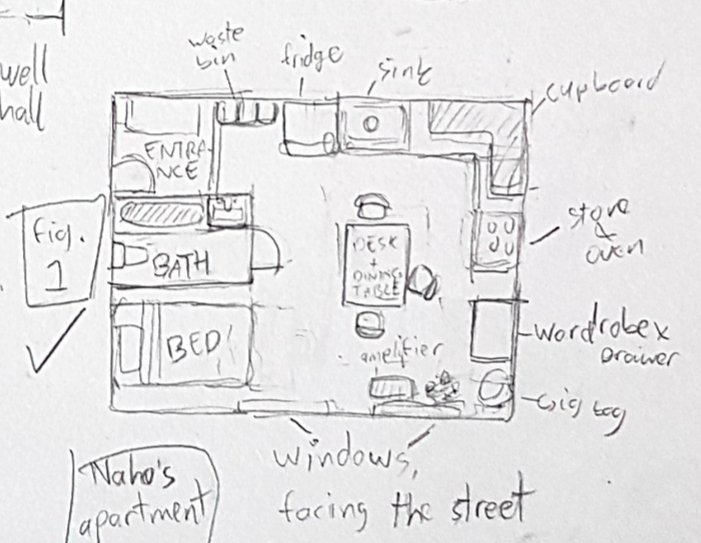 well
hall
waste
bin
fridge
sink
cupboard
ENTRA-
NCE
fig.
1
stove
&
oven
BATH
DESK
+
DINING
TABLE
BED
amplifier
wardrobe x
Drawer
gig bag
Naho's
apartment
windows,
facing the street